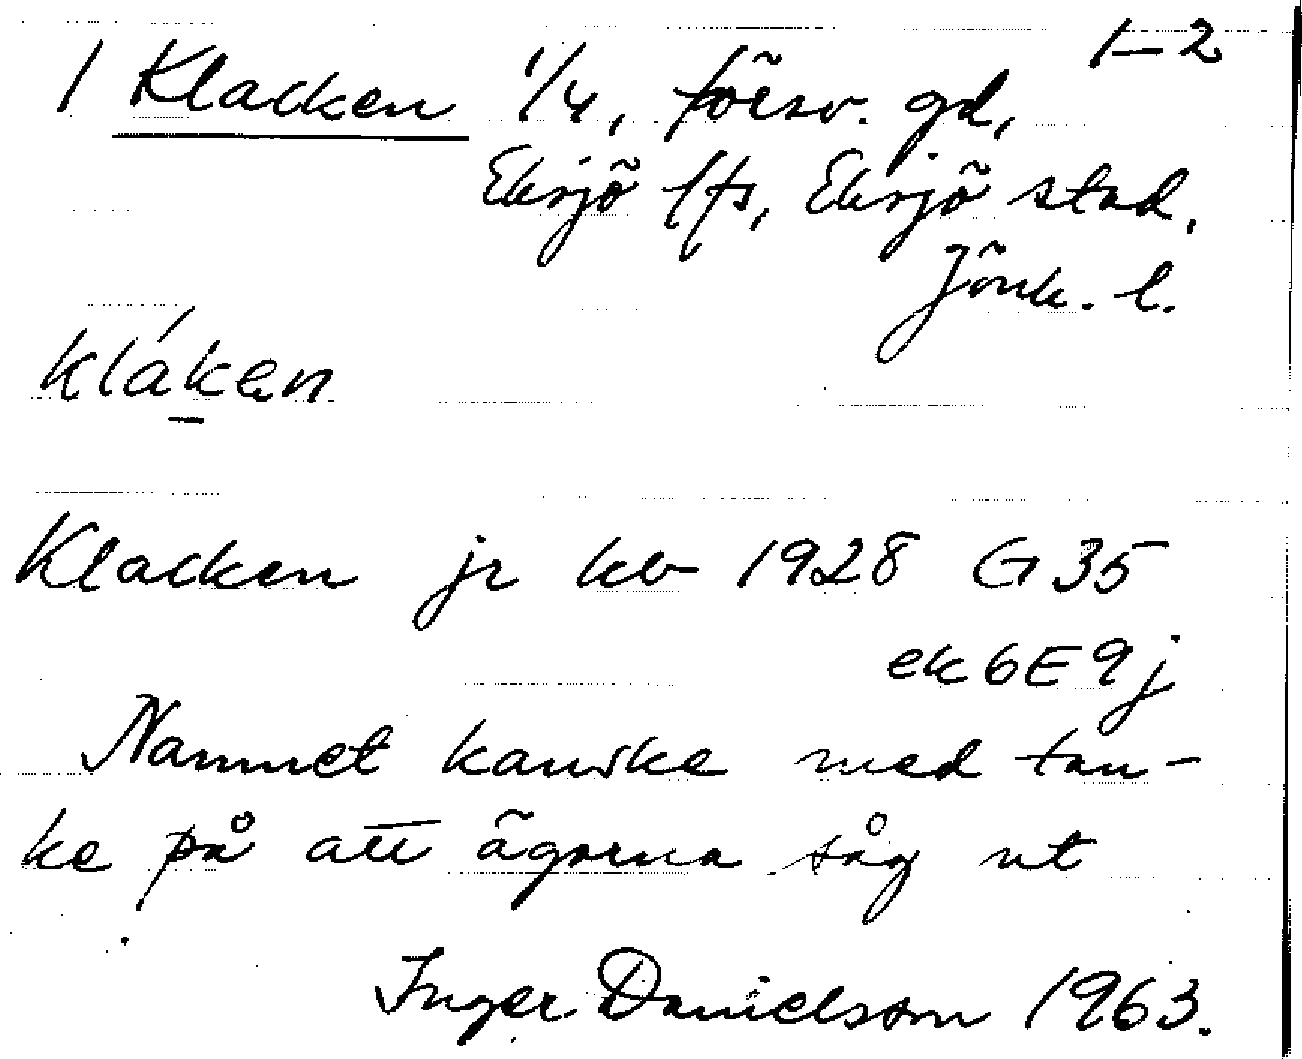 1-2
1 Klacken 1/4, försv. gd,
Eksjö lfs, Eksjö stad,
Jönk. l.
kláken
Klacken jr kb 1928 G 35
ek 6E9j
Namnet kanske med tan-
ke på att ägorna såg ut
Inger Danielsson 1963.